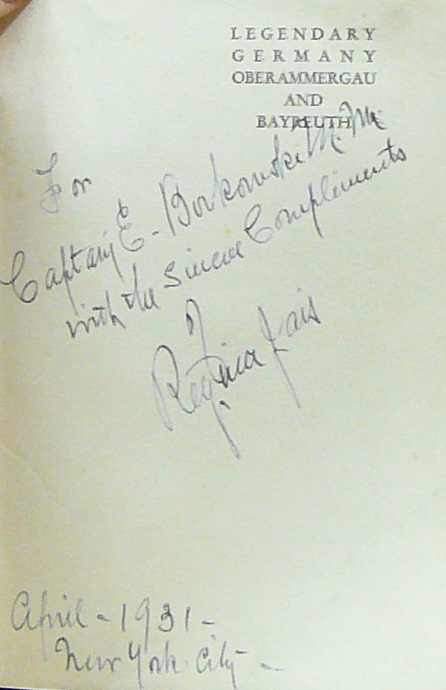 LEGENDARY
GERMANY
OBERAMMERGAU
AND
BAYREUTH
For
Captain E. Borkowski M.M.
with the Sincere Compliments
of
Regina Jais
April - 1931 -
New York City -